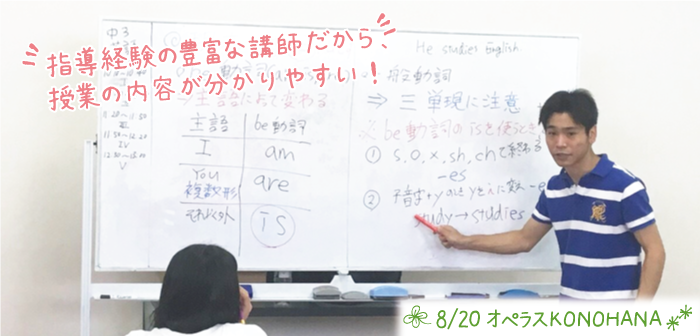 指導経験の豊富な講師だから、
授業の内容が分かりやすい！
中3
He studies English.
般動詞
⇒主語によって変わる
主語 be動詞
I am
You
複数形 are
それ以外 is
⇒ 三単現に注意
※be動詞のisを使うとき
① s,o,x,sh,chで終わる
-es
②
study→studies
8/20 オペラスKONOHANA